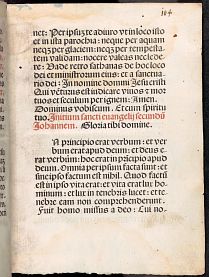 104
net: Per ipsuz te adiuro vt in loco isto
et in ista parochia: neque per aquam
neqz per glaciem: neqz per tempesta-
tem validam: nocere valeas nec lede-
re: Vade retro sathanas de hoc loco
dei et ministrorum eius: et a sanctua-
rio dei: In nomine domini Jesu cristi
Qui venturus est iudicare viuos et mor
tuos et seculum per ignem: Amen.
Dominus vobiscum. Et cum spiritu
tuo. Initium sancti euangelij secundū
Johannem. Gloria tibi domine.
A principio erat verbum: et ver-
bum erat apud deum: et deus e-
rat verbūm: hoc erat in pricipio apud
deum. Omnia per ipsum facta sunt: et
sine ipso factum est nihil. Quod factū
est in ipso vita erat: et vita erat lux ho
minum: et lux in tenebris lucet: et te-
nebre eam non comprehenderunt.
Fuit homo missus a deo: Cui no-